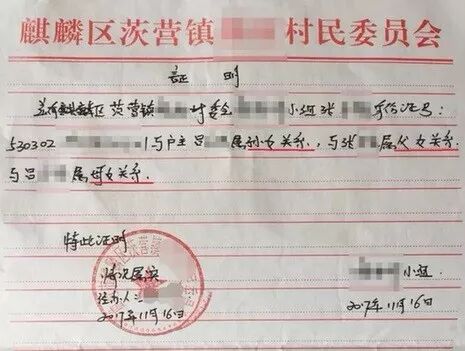 麒麟区茨营镇 村民委员会
证 明
兹有麒麟区茨营镇 村委会 小组张 身份证号:
530302 1与户主吕 属孙女关系,与张 属父女关系
与吕 属母女关系
特此证明
情况属实
经办人:
2017年11月16日
小组
2017年11月16日